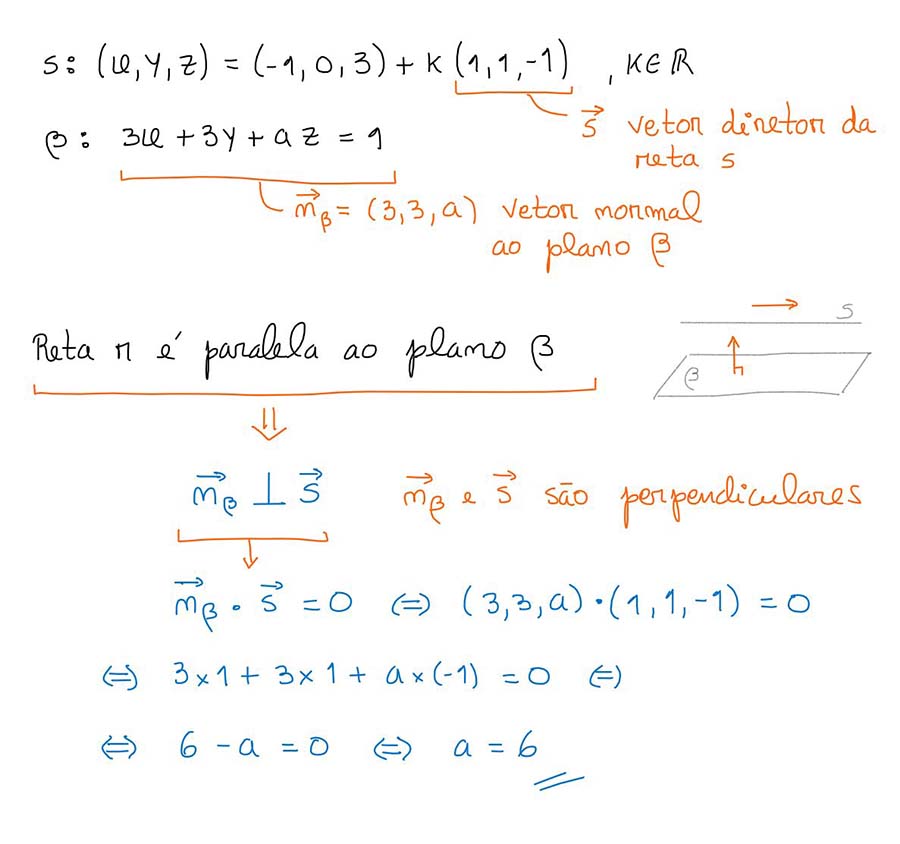 s: (x, y, z) = (-1, 0, 3) + k (1, 1, -1) , k ∈ ℝ
s⃗ vetor diretor da
reta s
β: 3x + 3y + a z = 1
n⃗β = (3, 3, a) vetor normal
ao plano β
s
β
Reta r é paralela ao plano β
⇓
n⃗β ⊥ s⃗ n⃗β e s⃗ são perpendiculares
n⃗β · s⃗ = 0 ⇔ (3, 3, a) · (1, 1, -1) = 0
⇔ 3×1 + 3×1 + a×(-1) = 0 ⇔
⇔ 6 - a = 0 ⇔ a = 6